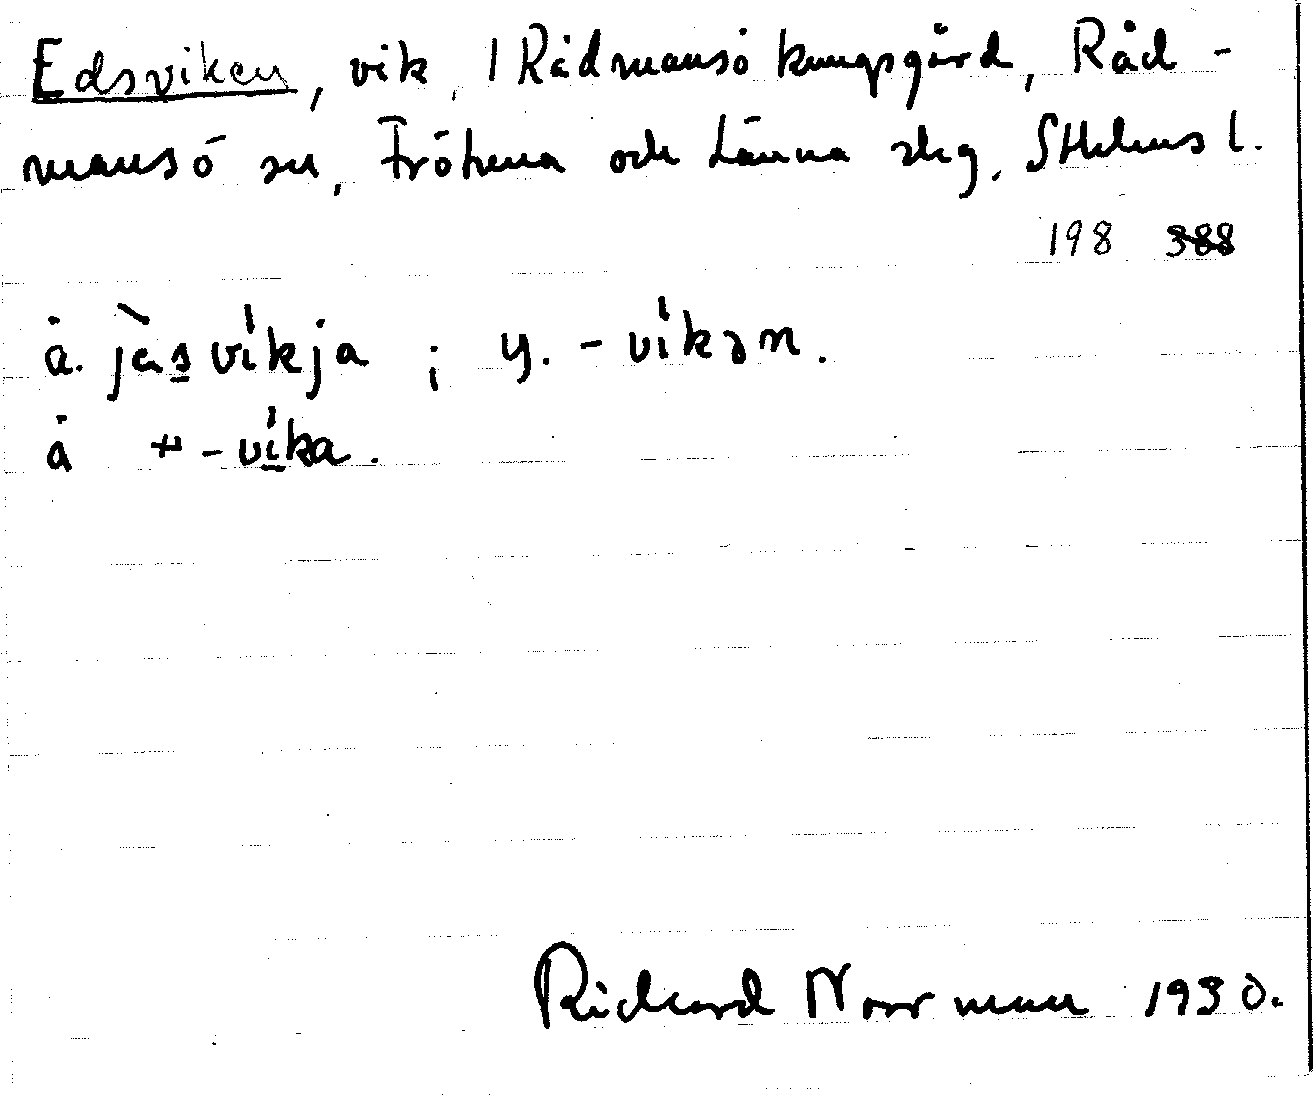 Edsviken, vik, 1 Rådmansö kungsgård, Råd-
mansö sn, Frötuna och Länna skg. Sthlms l.
198 388
ä. jèsvikja ; y. -vikən.
å -vika.
Richard Norrman 1930.